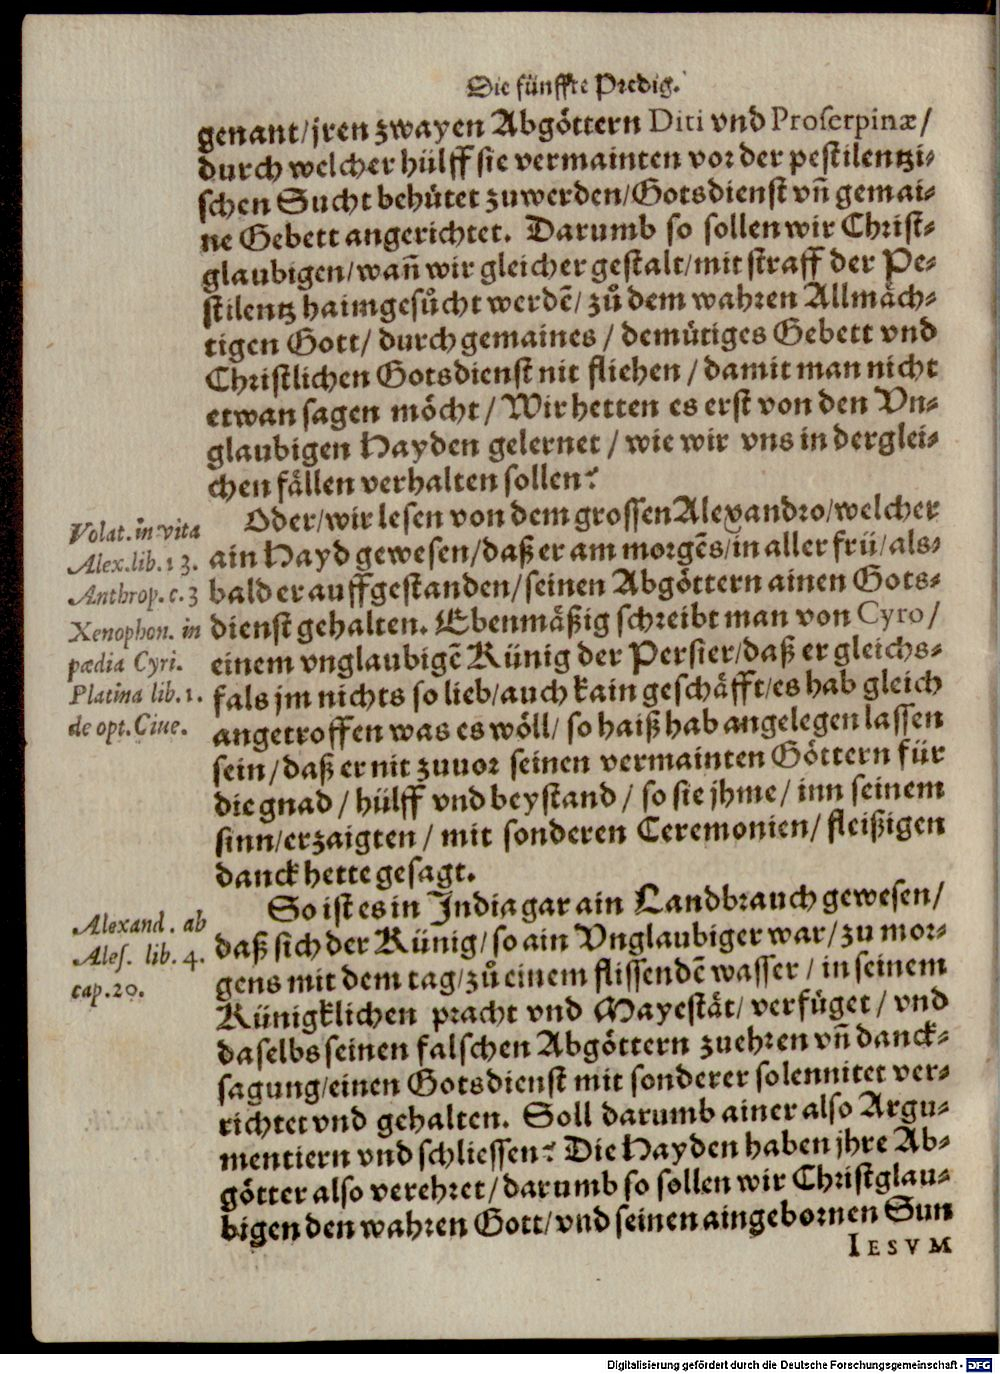 Die fünffte Predig.
genant/jren zwayen Abgöttern Diti vnd Proserpinæ/
durch welcher hülff sie vermainten vor der pestilentzi-
schen Sucht behütet zuwerden/Gotsdienst vn̄ gemai-
ne Gebett angerichtet. Darumb so sollen wir Christ-
glaubigen/wan̄ wir gleicher gestalt/mit straff der Pe-
stilentz haimgesůcht werdē/ zů dem wahren Allmäch-
tigen Gott/ durch gemaines / demütiges Gebett vnd
Christlichen Gotsdienst nit fliehen / damit man nicht
etwan sagen möcht / Wir hetten es erst von den Vn-
glaubigen Hayden gelernet / wie wir vns in derglei-
chen fällen verhalten sollen?
Oder/wir lesen von dem grossen Alexandro/welcher
ain Hayd gewesen/daß er am morgēs/in aller frü/als-
bald er auffgestanden/seinen Abgöttern ainen Gots-
dienst gehalten. Ebenmäßig schreibt man von Cyro/
einem vnglaubigē Künig der Persier/daß er gleichs-
fals jm nichts so lieb/auch kain geschäfft/es hab gleich
angetroffen was es wöll/ so haiß hab angelegen lassen
sein/daß er nit zuuor seinen vermainten Göttern für
die gnad / hülff vnd beystand / so sie jhme/ inn seinem
sinn/erzaigten / mit sonderen Ceremonien/ fleißigen
danck hette gesagt.
Volat. in vita
Alex. lib. 13.
Anthrop. c. 3
Xenophon. in
pædia Cyri.
Platina lib. 1.
de opt. Ciue.
So ist es in India gar ain Landbrauch gewesen/
daß sich der Künig/so ain Vnglaubiger war/zu mor-
gens mit dem tag/zů einem flissendē wasser / in seinem
Künigklichen pracht vnd Mayestät/ verfüget / vnd
daselbs seinen falschen Abgöttern zuehren vn̄ danck-
sagung/einen Gotsdienst mit sonderer solennitet ver-
richtet vnd gehalten. Soll darumb ainer also Argu-
mentiern vnd schliessen? Die Hayden haben jhre Ab-
götter also verehret/darumb so sollen wir Christglau-
bigen den wahren Gott/vnd seinen aingebornen Sun
IESVM
Alexand. ab
Ales. lib. 4.
cap. 20.
Digitalisierung gefördert durch die Deutsche Forschungsgemeinschaft - DFG